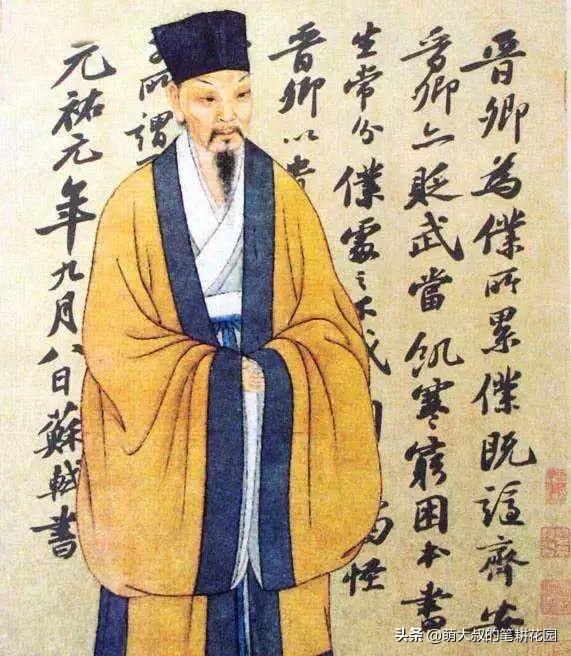 晋卿為僕所累僕既謫齊安
晋卿亦貶武當飢寒窮困本書
生常分僕處之不戚
晋卿以貴
所謂
元祐元年九月八日蘇軾書
头条@萌大叔的笔耕花园